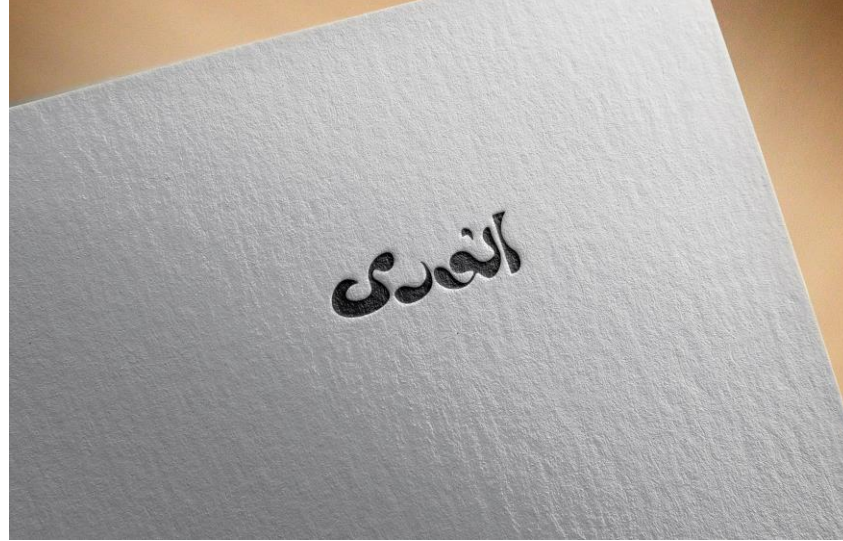 انورى